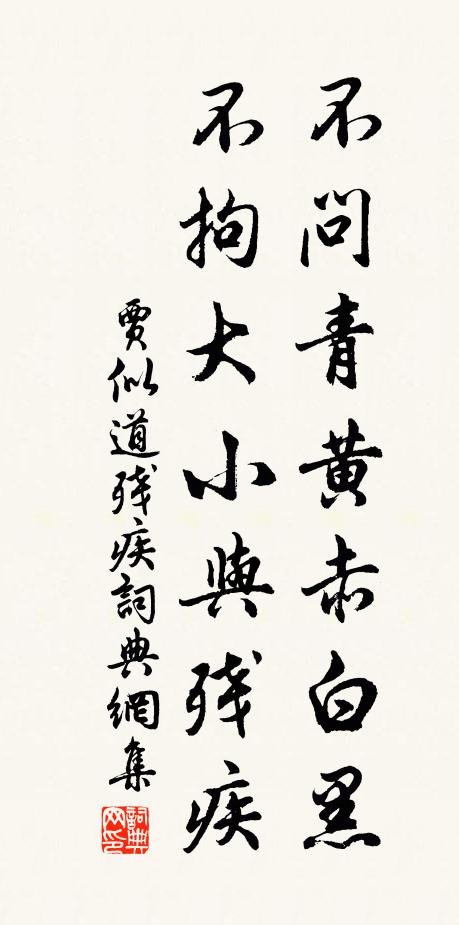 不問青黄赤白黑
不拘大小與残疾
賈似道残疾詞典網集
詞典网印